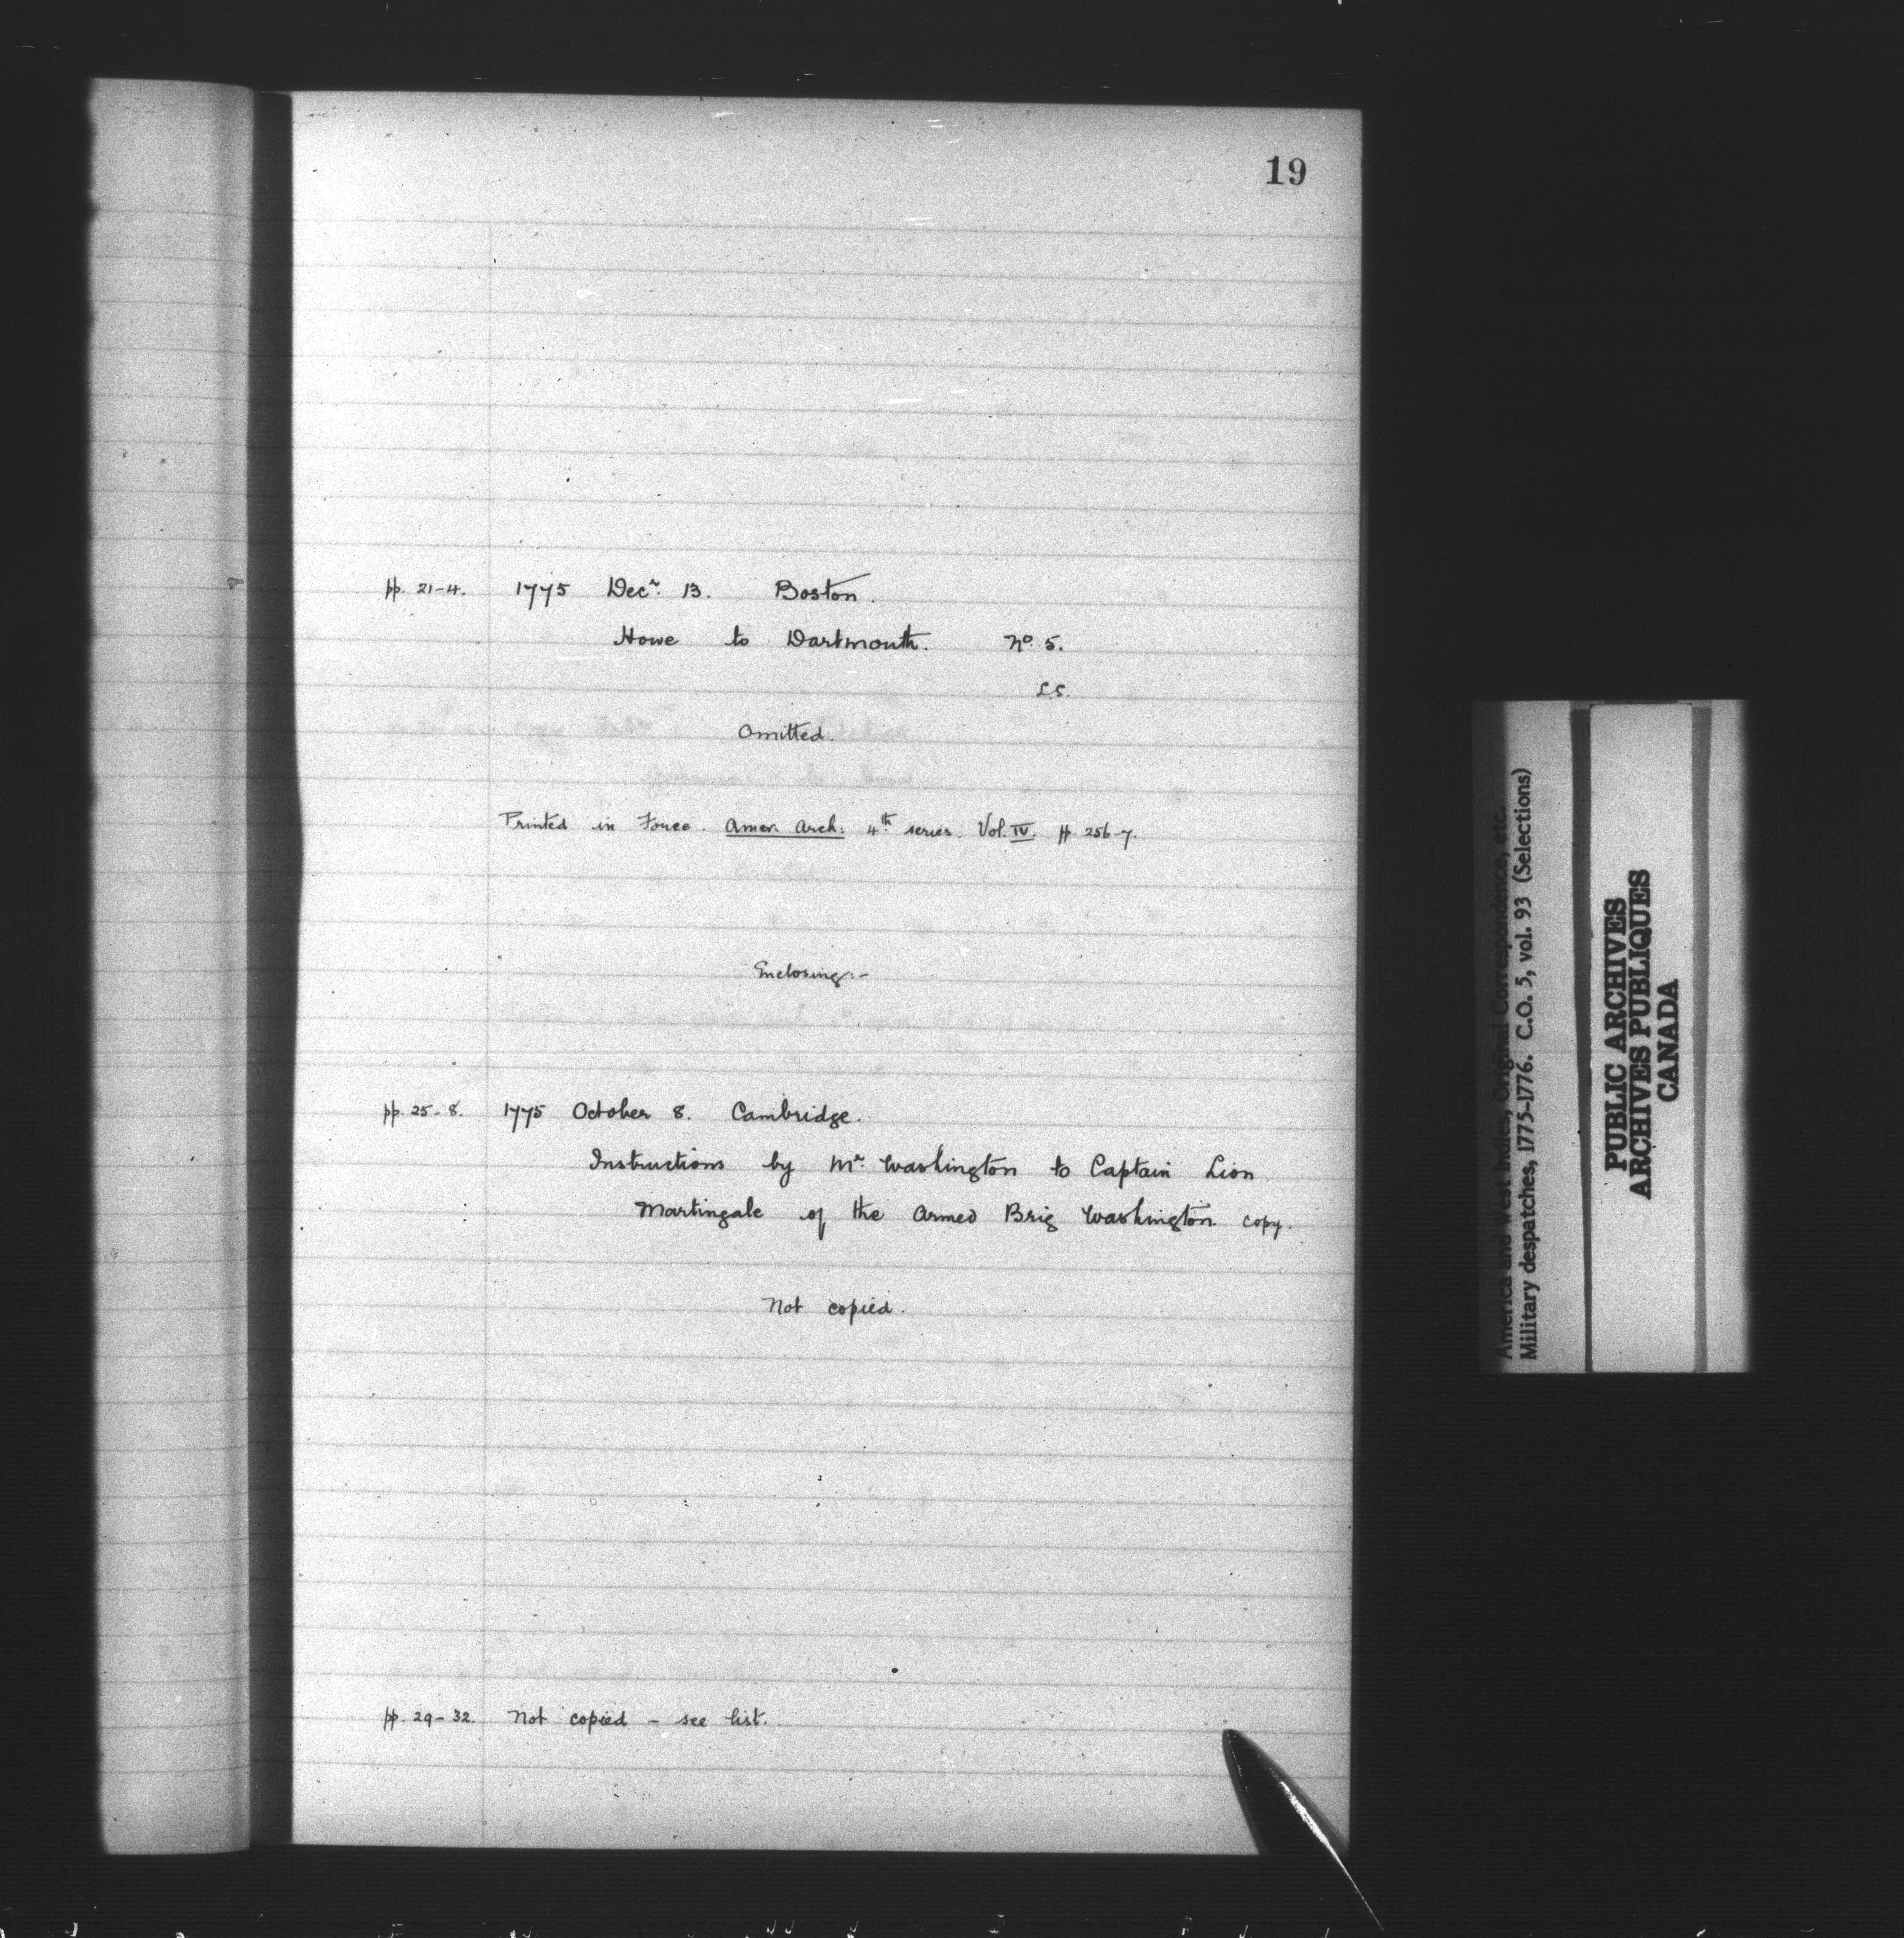 19
pp. 21-4. 1775 Decr. 13. Boston.
Howe to Dartmouth. No. 5.
L.S.
Omitted.
Printed in Force. Amer. Arch: 4th series. Vol. IV. pp. 256-7.
Enclosing:-
pp. 25-8. 1775 October 8. Cambridge.
Instructions by Mr. Washington to Captain Lion
Martingale of the Armed Brig Washington. copy.
Not copied.
pp. 29-32. Not copied - see list.
America and West Indies, Original Correspondence, etc.
Military despatches, 1775-1776. C.O. 5, vol. 93 (Selections)
PUBLIC ARCHIVES
ARCHIVES PUBLIQUES
CANADA